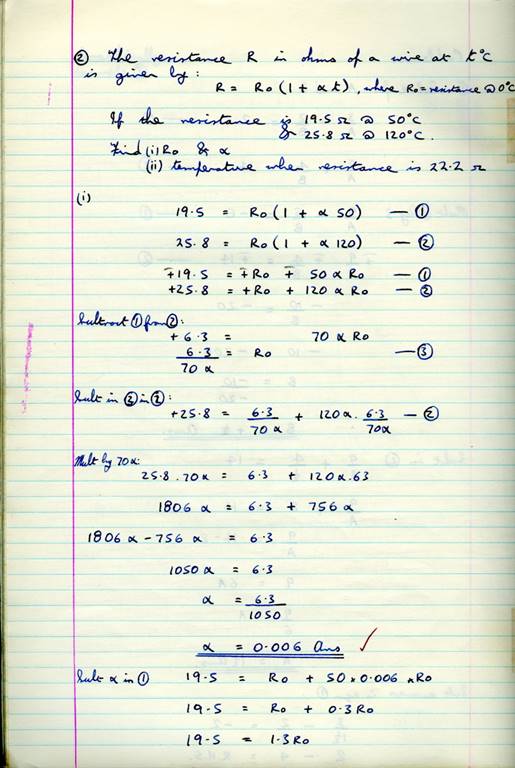 ② The resistance R in ohms of a wire at t°C
is given by:
R = Ro (1 + α t), where Ro = resistance @ 0°C
If the resistance is 19.5 Ω @ 50°C
& 25.8 Ω @ 120°C.
Find (i) Ro & α
(ii) temperature when resistance is 22.2 Ω
(i)
19.5 = Ro (1 + α 50) — ①
25.8 = Ro (1 + α 120) — ②
∓19.5 = ∓Ro ∓ 50 α Ro — ①
+25.8 = +Ro + 120 α Ro — ②
Subtract ① from ②:
+ 6.3 = 70 α Ro
6.3 / 70 α = Ro — ③
Subt in ③ in ②:
+25.8 = 6.3 / 70 α + 120 α . 6.3 / 70α — ②
Mult by 70α:
25.8 . 70α = 6.3 + 120 α . 63
1806 α = 6.3 + 756 α
1806 α - 756 α = 6.3
1050 α = 6.3
α = 6.3 / 1050
α = 0.006 Ans ✓
Subt α in ① 19.5 = Ro + 50 x 0.006 x Ro
19.5 = Ro + 0.3 Ro
19.5 = 1.3 Ro